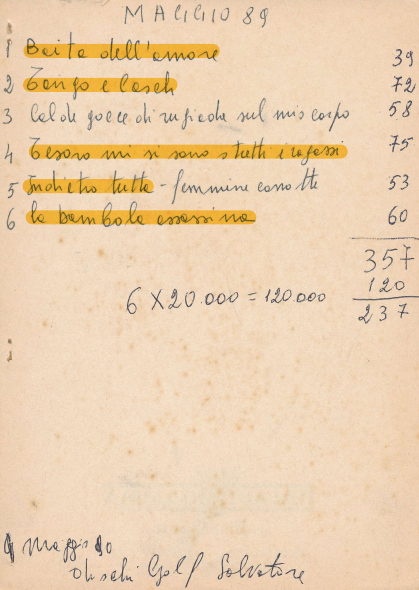 MAGGIO 89
1 Baita dell'amore 39
2 Tango e Cash 72
3 Calde gocce di rugiada sul mio corpo 58
4 Tesoro mi si sono stretti i ragazzi 75
5 Indietro tutta - femmine corrotte 53
6 la bambola assassina 60
357
6 X 20.000 = 120.000 120
237
Maggio
Golf Salvatore